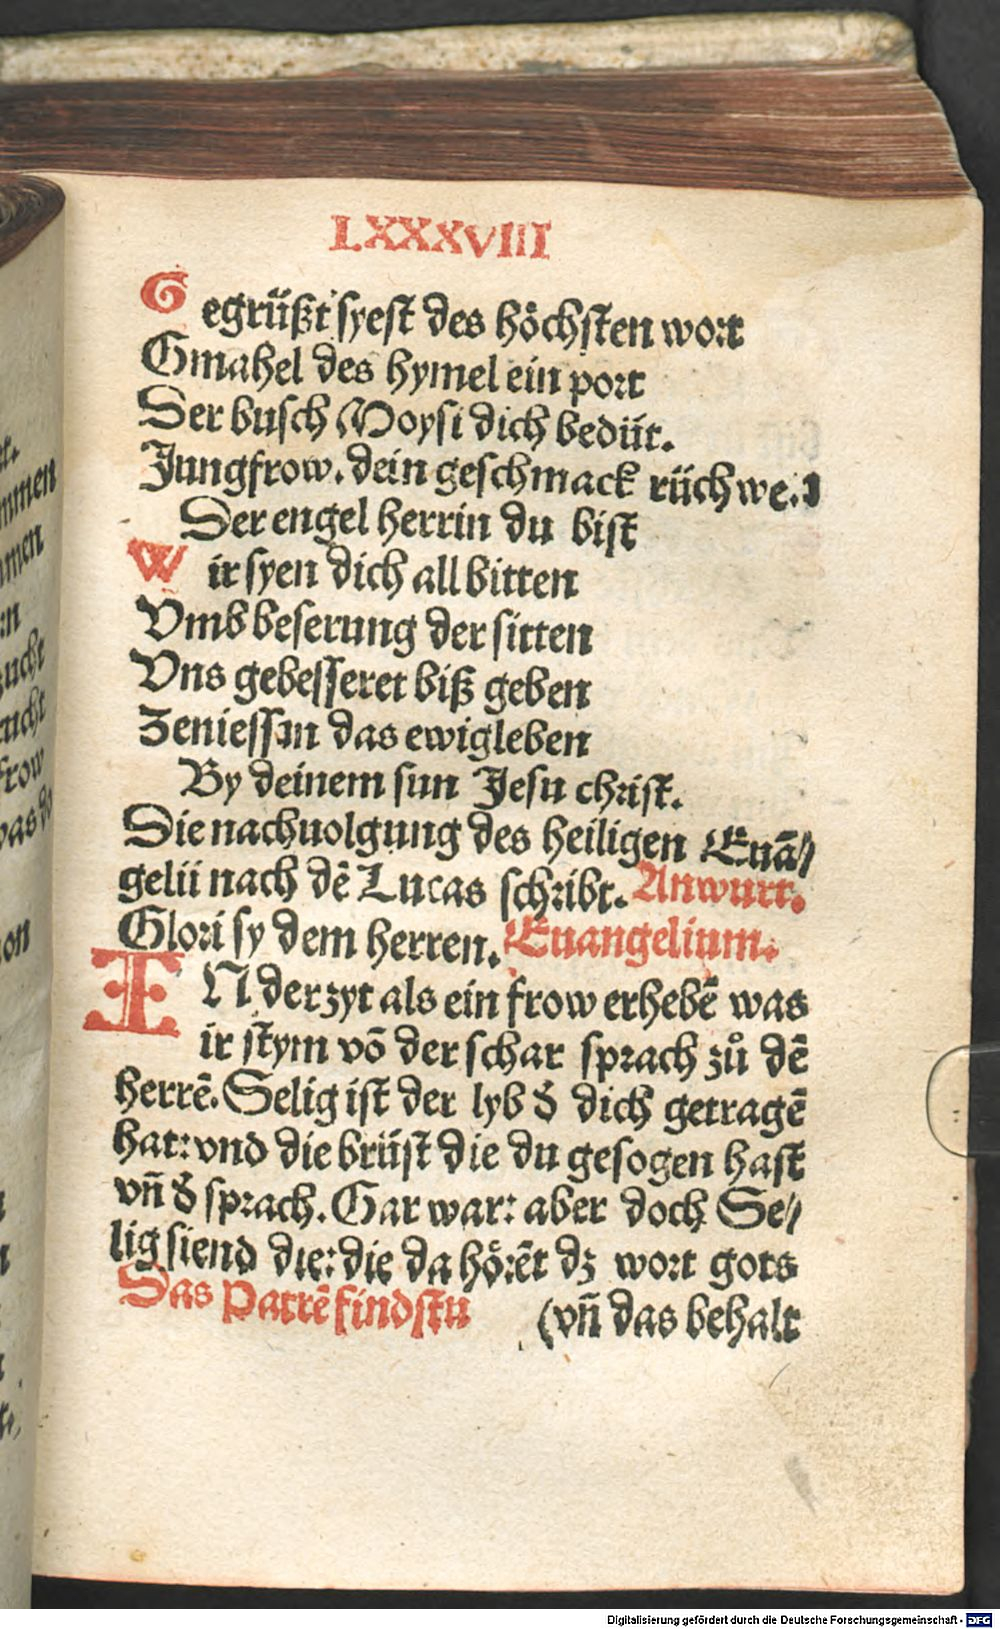 LXXXVIII
Gegrüßt syest des höchsten wort
Gmahel des hymel ein port
Der busch Moysi dich bedüt.
Jungfrow. dein geschmack rüch
Der engel herrin du bist
Wir syen dich all bitten
Vmb beserung der sitten
Vns gebesseret biß geben
Zeniessin das ewigleben
By deinem sun Jesu christ.
Die nachuolgung des heiligen Euā⸗
gelii nach dē Lucas schribt. Anwurt.
Glori sy dem herren. Euangelium.
IN der zyt als ein frow erhebē was
ir stym vō der schar sprach zů dē
herrē. Selig ist der lyb d̕ dich getragē
hat: vnd die brüst die du gesogen hast
vn̄ d̕ sprach. Gar war: aber doch Se⸗
lig siend die: die da hörēt dz wort gots
Das Patrē findstu (vn̄ das behalt
mmen
men
zucht
frow
was
Digitalisierung gefördert durch die Deutsche Forschungsgemeinschaft - DFG